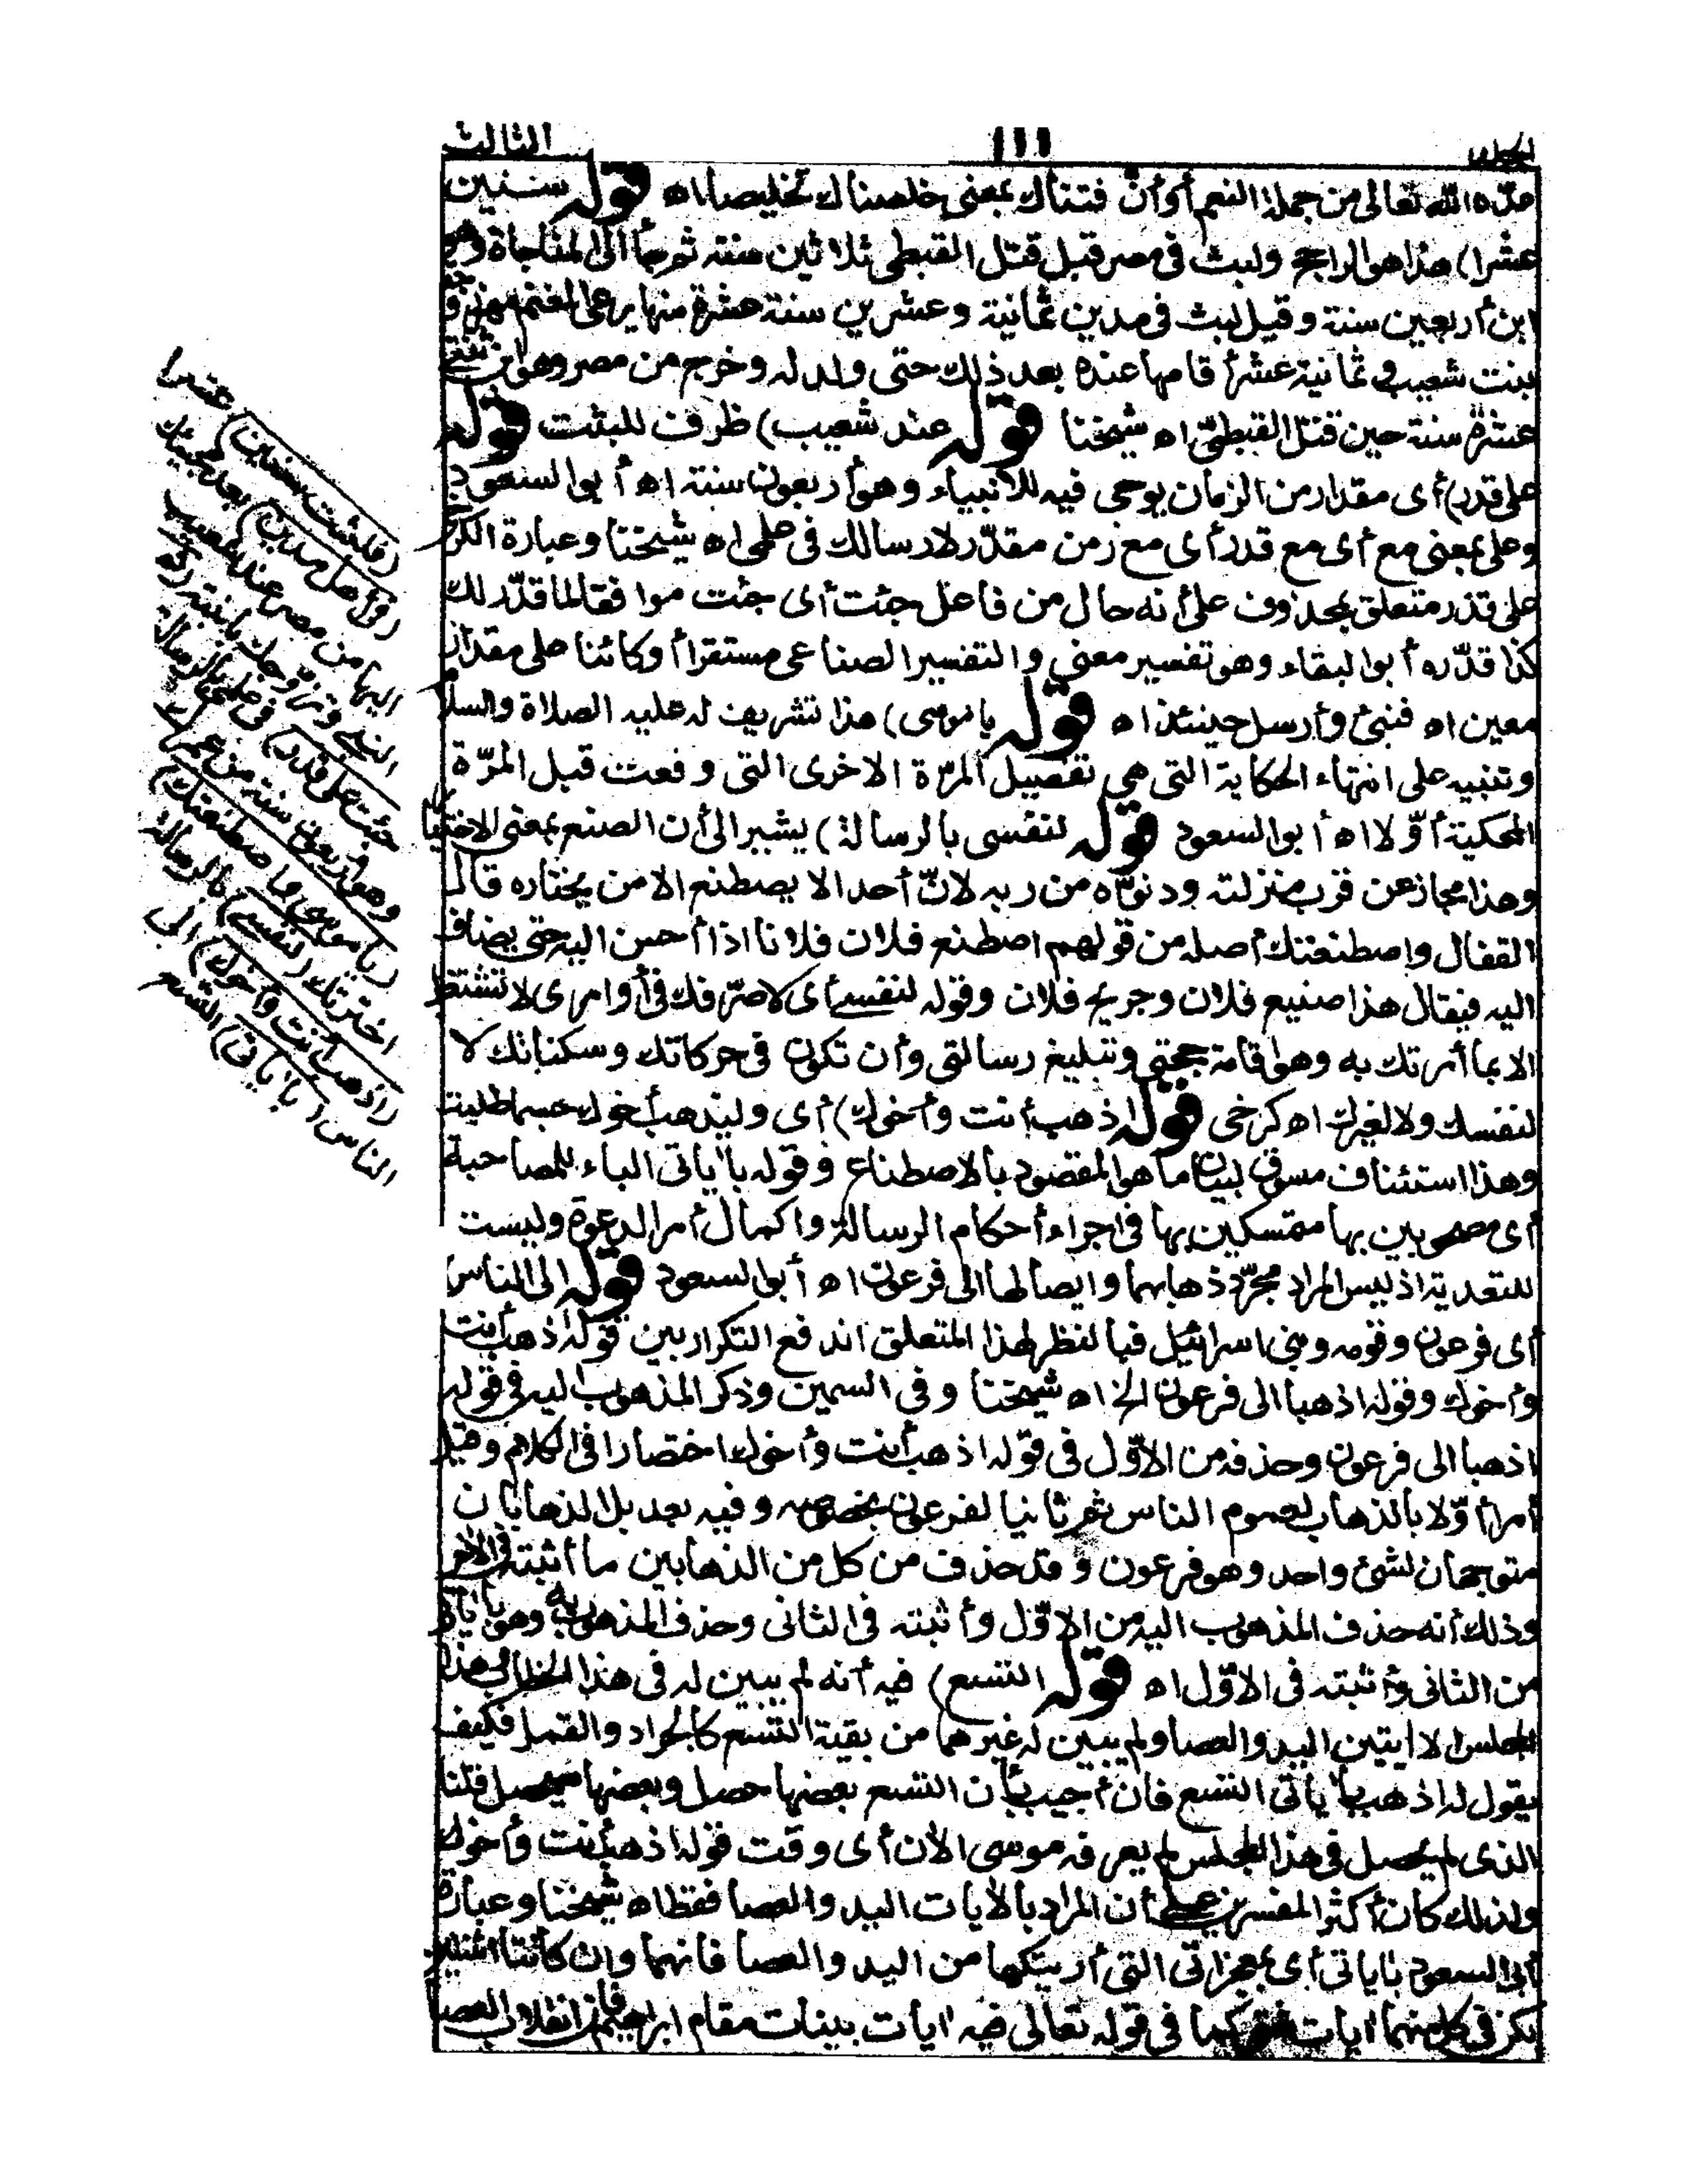 الجلد ١١١ الثالث
عدّه الله تعالى من جملة النعم أو أنّ فتناك بمعنى خلصناك تخليصا اه قوله سنين
عشرا) هذا هو الراجح ولبث فى مصر قبل قتل القبطى ثلاثين سنة ثم جاء الى المناجاة وهو
ابن أربعين سنة وقيل لبث فى مدين ثمانية وعشرين سنة عشرة منها يرعى الغنم مهر
بنت شعيب وثمانية عشر أقامها عنده بعد ذلك حتى ولد له وخرج من مصر وهو ابن
عشرة سنة حين قتل القبطىّ اه شيخنا قوله عند شعيب) ظرف للبثت قوله
على قدر) أى مقدار من الزمان يوحى فيه للانبياء وهو أربعون سنة اه أبو السعود
وعلى بمعنى مع أى مع قدر أى مع زمن مقدّر لارسالك فى علمى اه شيخنا وعبارة الكرخى
على قدر متعلق بمحذوف على أنه حال من فاعل جئت أى جئت موافقا لما قدّر لك
كذا قدّره أبو البقاء وهو تفسير معنى والتفسير الصناعى مستقرا أو كائنا على مقدار
معين اه فنبئ وأرسل حينئذ اه قوله يا موسى) هذا تشريف له عليه الصلاة والسلام
وتنبيه على انتهاء الحكاية التى هى تفصيل المرّة الاخرى التى وقعت قبل المرّة
المحكية أوّلا اه أبو السعود قوله لنفسى بالرسالة) يشير الى أن الصنع بمعنى الاختيار
وهذا مجاز عن قرب منزلته ودنوّه من ربه لانّ أحدا لا يصطنع الا من يختاره قال
القفال واصطنعتك أصله من قولهم اصطنع فلان فلانا اذا أحسن اليه حتى يضاف
اليه فيقال هذا صنيع فلان وجريح فلان وقوله لنفسى أى لاصرّفك فى أوامرى لا تشتغل
الا بما أمرتك به وهو اقامة حجتى وتبليغ رسالتى وأن تكون فى حركاتك وسكناتك لا
لنفسك ولا لغيرك اه كرخى قوله اذهب أنت وأخوك) أى وليذهب أخوك حسبما طلبت
وهذا استئناف مسوق لبيان ما هو المقصود بالاصطناع وقوله بآياتى الباء للمصاحبة
أى مصحوبين بها متمسكين بها فى اجراء أحكام الرسالة واكمال أمر الدعوة وليست
للتعدية اذ ليس المراد مجرّد ذهابهما وايصالها الى فرعون اه أبو السعود قوله الى الناس
أى فرعون وقومه وبنى اسرائيل فبالنظر لهذا المتعلق اندفع التكرار بين قوله اذهب أنت
وأخوك وقوله اذهبا الى فرعون الخ اه شيخنا وفى السمين وذكر المذهوب اليه فى قوله
اذهبا الى فرعون وحذفه من الاوّل فى قوله اذهب أنت وأخوك اختصارا فى الكلام وقيل
أمرا أوّلا بالذهاب لعموم الناس ثم ثانيا لفرعون بخصوصه وفيه بعد بل الذهابان
متوجهان لشئ واحد وهو فرعون وقد حذف من كل من الذهابين ما أثبته فى الآخر
وذلك أنه حذف المذهوب اليه من الاوّل وأثبته فى الثانى وحذف المذهوب به وهو بآياتى
من الثانى وأثبته فى الاوّل اه قوله التسع) فيه أنه لم يبين له فى هذا الخطاب وهذا
المجلس الا آيتين اليد والعصا ولم يبين له غيرهما من بقية التسع كالجراد والقمل فكيف
يقول له اذهب بآياتى التسع فان أجيب بأن التسع بعضها حصل وبعضها سيحصل قلنا
الذى لم يحصل فى هذا المجلس لم يعرفه موسى الآن أى وقت قوله اذهب أنت وأخوك
ولذلك كان أكثر المفسرين على أن المراد بالآيات اليد والعصا فقط اه شيخنا وعبارة
أبى السعود بآياتى أى بمعجزاتى التى أريتكها من اليد والعصا فانهما وان كانتا اثنتين
لكن فى كل منهما آيات كما فى قوله تعالى فيه آيات بينات مقام ابراهيم فان انقلاب العصا
(فلبثت سنين) عشرا
(فى أهل مدين) بعد مجيئك
اليها من مصر عند شعيب
النبى وتزوّجك بابنته (ثم
جئت على قدر) فى علمى بالرسالة
وهو أربعون سنة من عمرك
(يا موسى واصطنعتك)
اخترتك (لنفسى) بالرسالة
(اذهب أنت وأخوك) الى
الناس (بآياتى) التسع